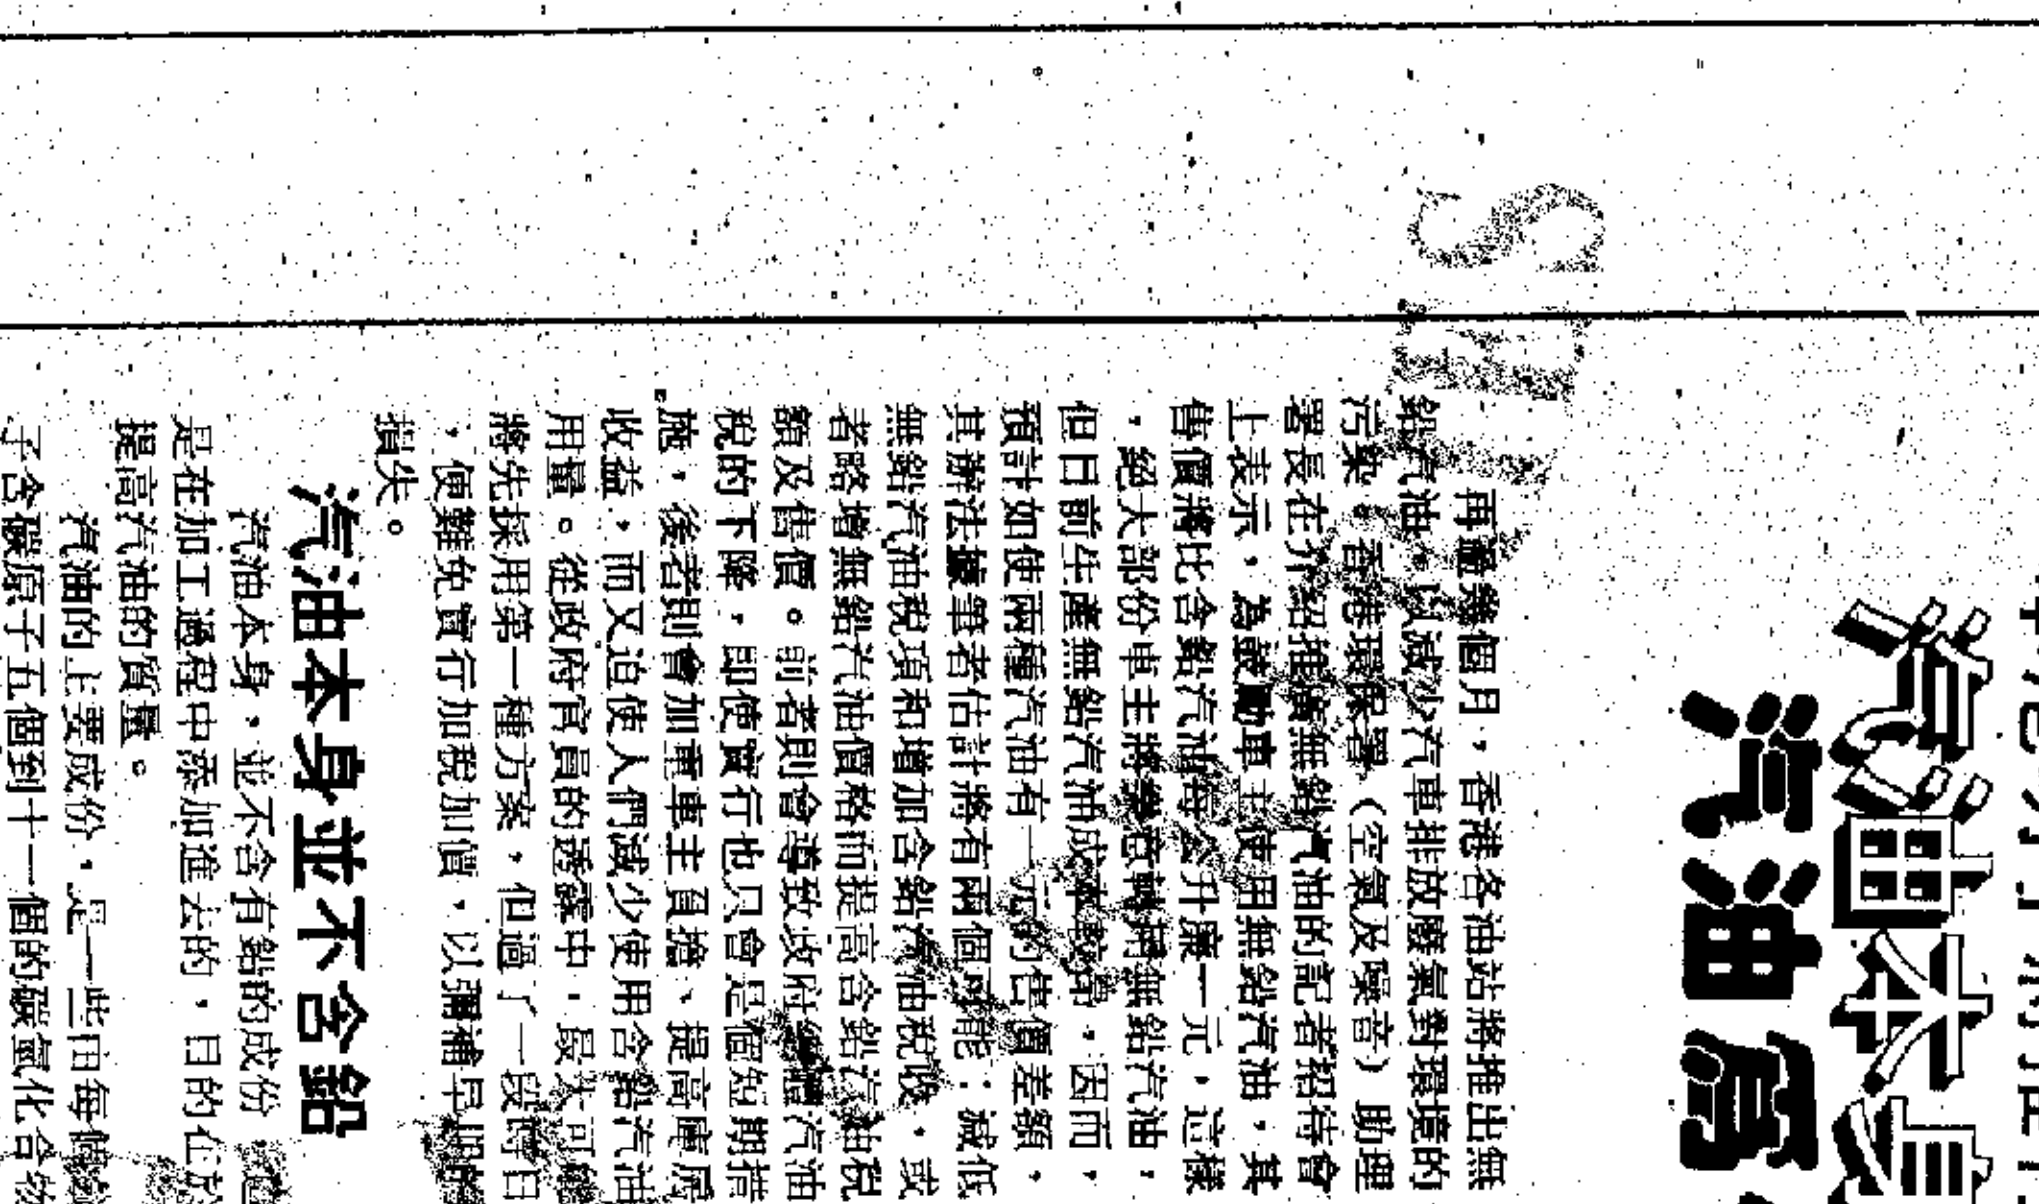 汽油本身
汽油質
再過幾個月，香港各油站將推出無
鉛汽油，以減少汽車排放廢氣對環境的
污染。香港環保署（空氣及噪音）助理
署長在介紹推廣無鉛汽油的記者招待會
上表示，為鼓勵車主使用無鉛汽油，其
售價將比含鉛汽油每公升廉一元，這樣
，絕大部份車主將樂意轉用無鉛汽油，
但目前生產無鉛汽油成本較高，因而，
預計如使兩種汽油有一元的售價差額，
其辦法據筆者估計將有兩個可能：減低
無鉛汽油稅項和增加含鉛汽油稅收，或
者略增無鉛汽油價格而提高含鉛汽油稅
額及售價。前者則會導致政府無鉛汽油
稅的下降，即使實行也只會是個短期措
施，後者則會加重車主負擔、提高庫房
收益，而又迫使人們減少使用含鉛汽油
用量。從政府官員的透露中，最大可能
將先採用第一種方案，但過了一段時日
，便難免實行加稅加價，以彌補早期的
損失。
汽油本身並不含鉛
汽油本身，並不含有鉛的成份
是在加工過程中添加進去的，目的在於
提高汽油的質量。
汽油的主要成份，是一些由每個
子含碳原子五個到十一個的碳氫化合物